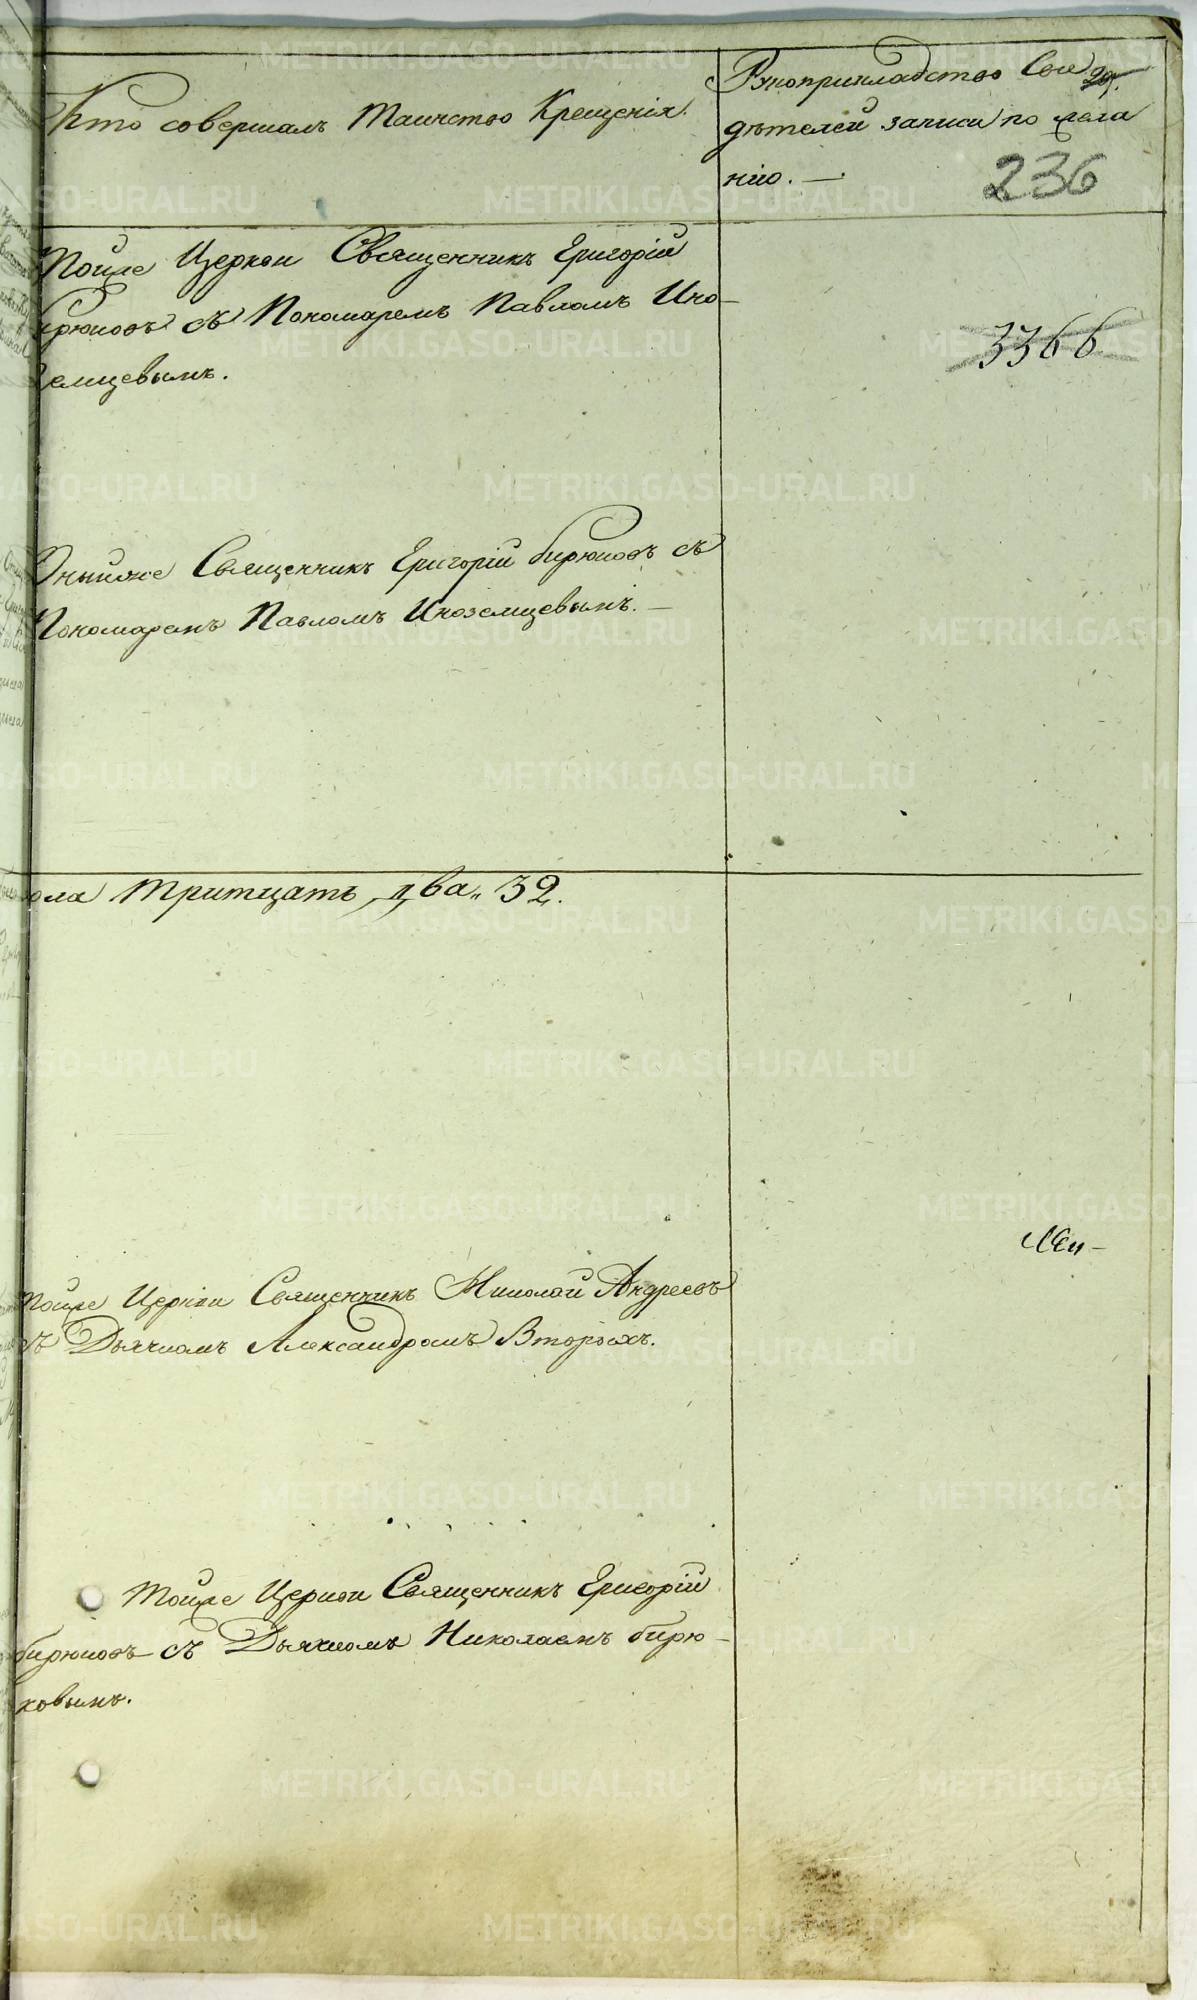 Кто совершалъ таинство Крещенія.
Рукоприкладство Сви
дѣтелей записи по жела
нію. —
236
тойже Церкви Священникъ Григорій
бирюковъ съ Пономаремъ Павломъ Ино-
земцевымъ.
3366
Оныйже Священникъ Григорій бирюковъ съ
Пономаремъ Павломъ Иноземцевымъ. —
пола тритцать два „ 32.
тойже Церкви Священникъ Николай Андреевъ
съ Дьячкомъ Александромъ Вторыхъ.
тойже Церкви Священникъ Григорій
бирюковъ съ Дьячкомъ Николаемъ бирю-
ковымъ.
METRIKI.GASO-URAL.RU